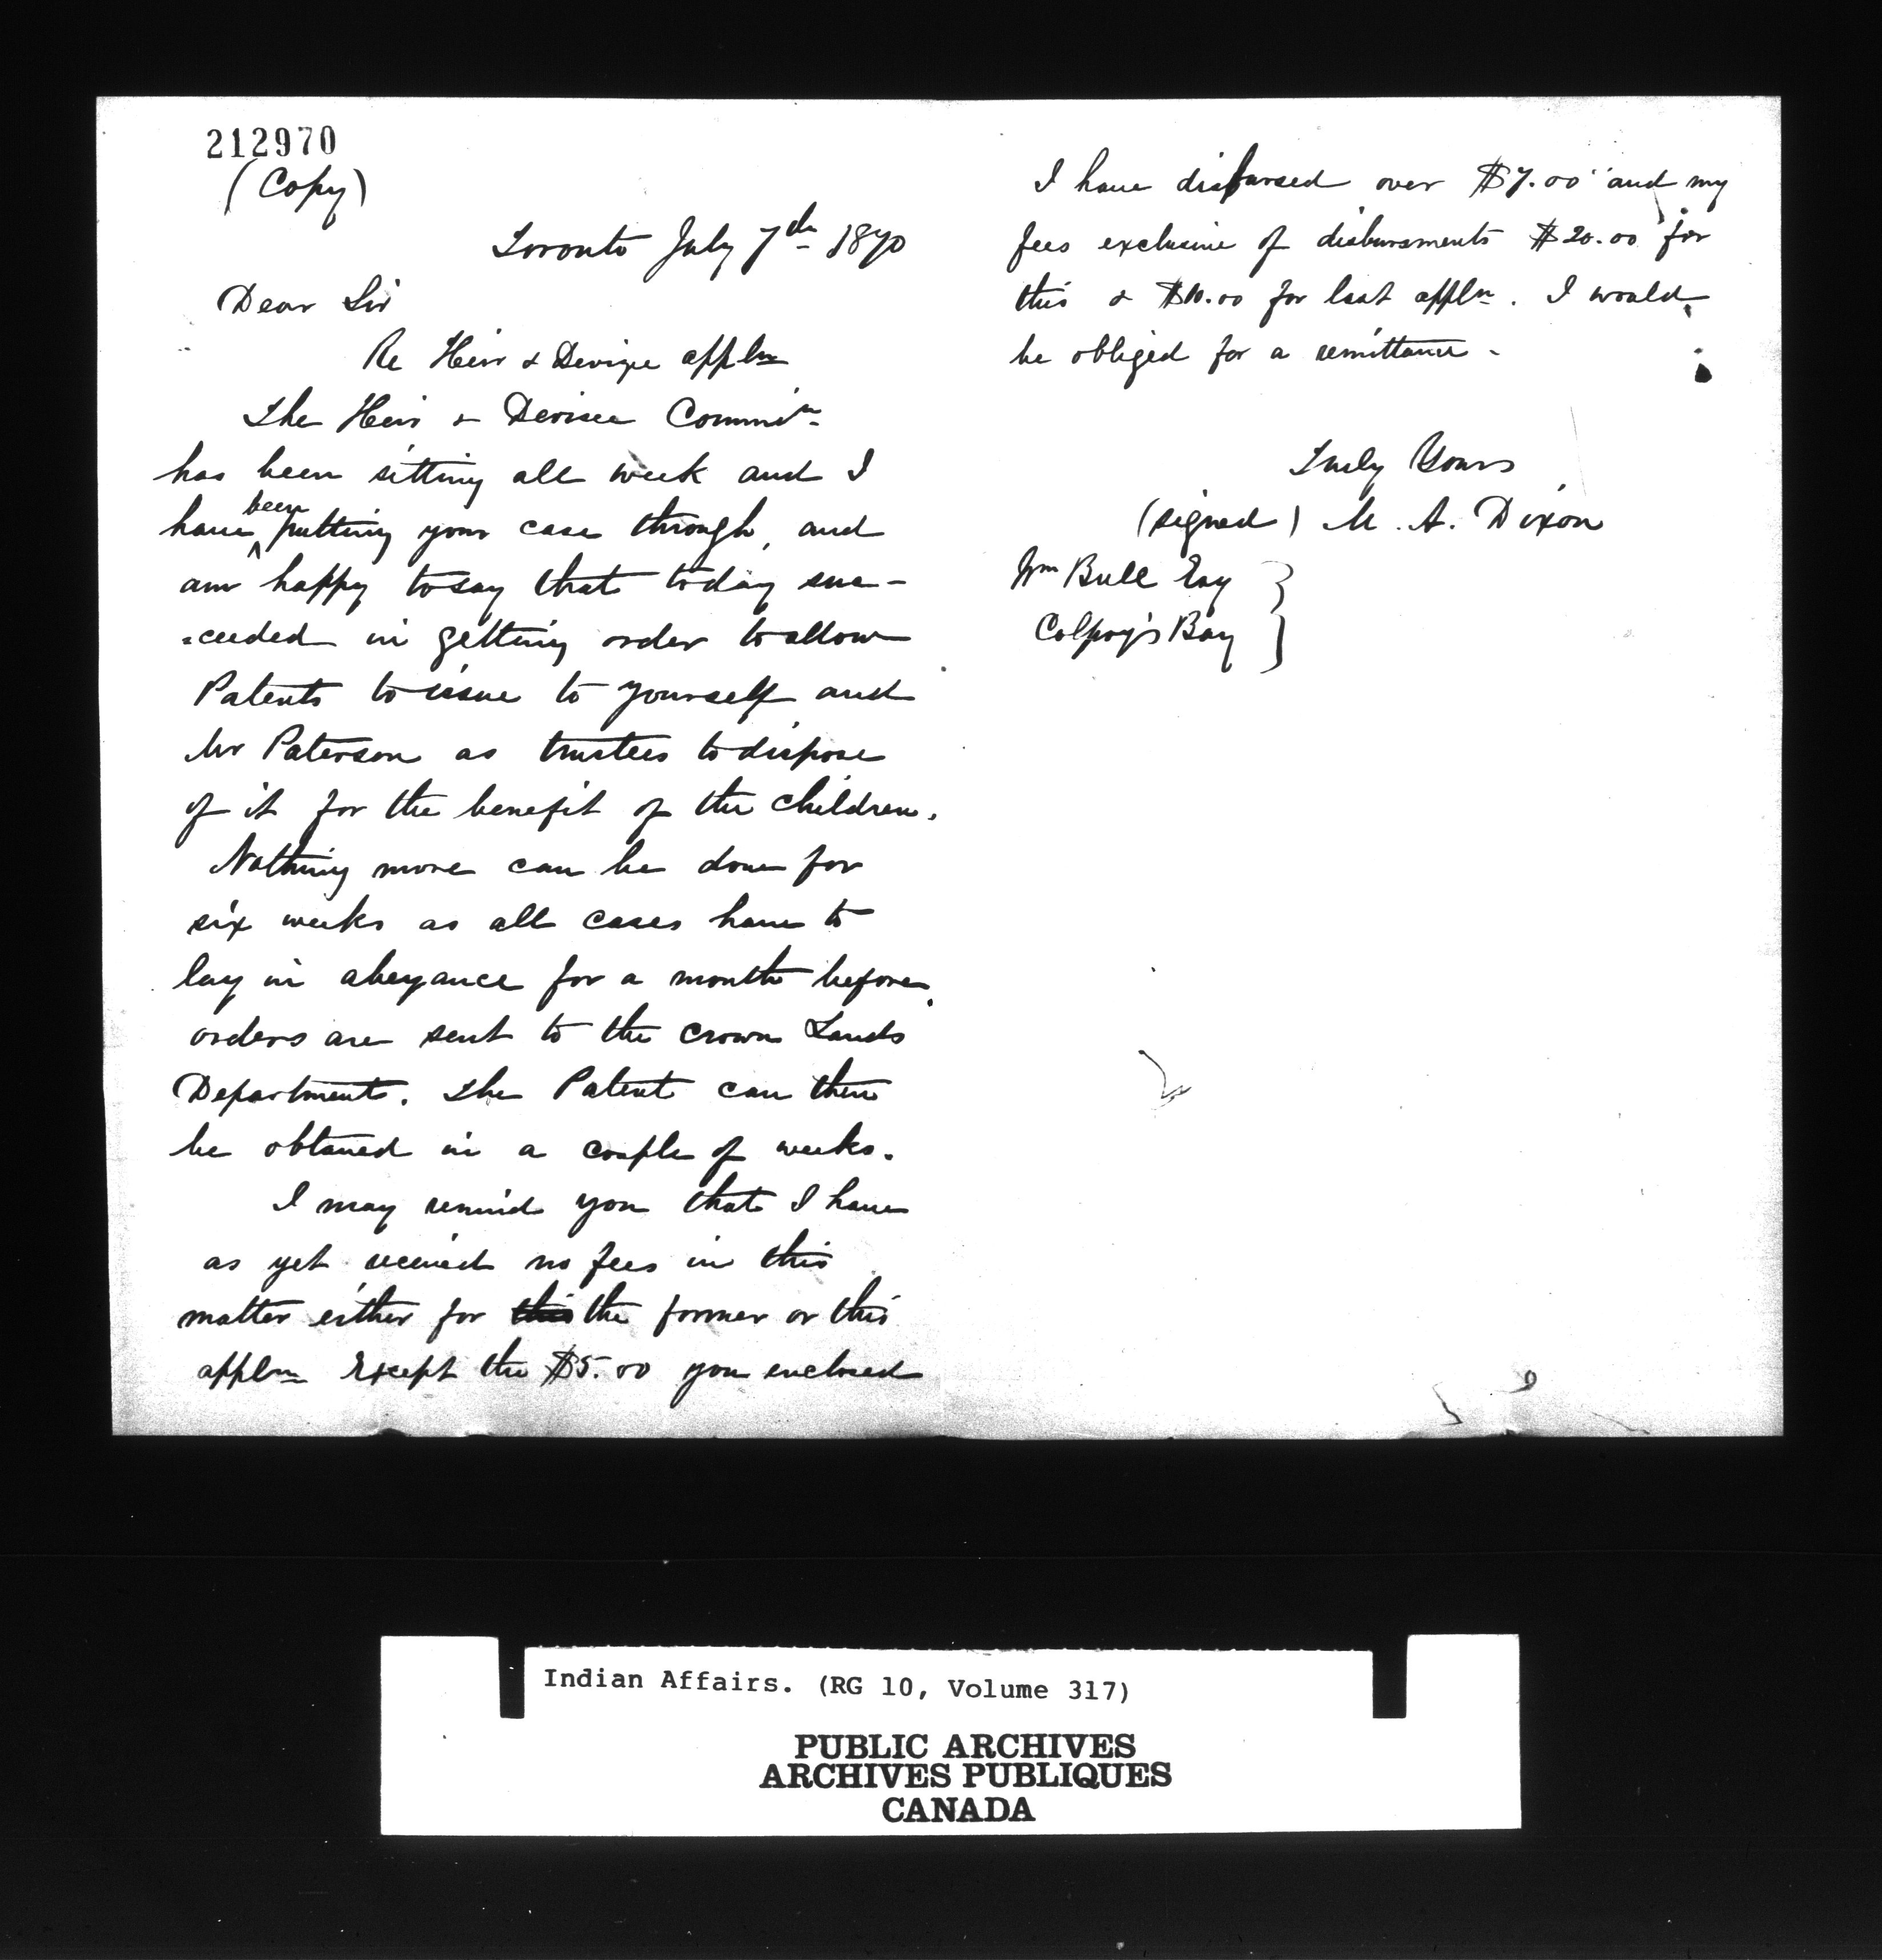 212970
(Copy)
Toronto July 7th 1870
Dear Sir
Re Heir & Devisee appln
The Heir & Devisee Commn
has been sitting all week and I
have been putting your case through, and
am happy to say that today suc-
=ceeded in getting order to allow
Patents to issue to yourself and
Mr Paterson as trustees to dispose
of it for the benefit of the children.
Nothing more can be done for
six weeks as all cases have to
lay in abeyance for a month before
orders are sent to the Crown Lands
Department. The Patent can then
be obtained in a couple of weeks.
I may remind you that I have
as yet received no fees in this
matter either for this the former or this
appln Except the $5.00 you enclosed
I have disbursed over $7.00 and my
fees exclusive of disbursments $20.00 for
this & $10.00 for last appln. I would
be obliged for a remittance -
Truly Yours
(signed) M. A. Dixon
Wm Bull Esq
Colpoy's Bay
Indian Affairs. (RG 10, Volume 317)
PUBLIC ARCHIVES
ARCHIVES PUBLIQUES
CANADA